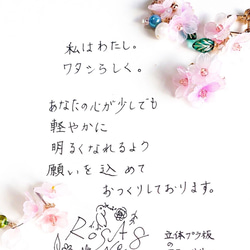 私はわたし。
ワタシらしく。
あなたの心が少しでも
軽やかに
明るくなれるよう
願いを込めて
おつくりしております。
立体プラ板
の